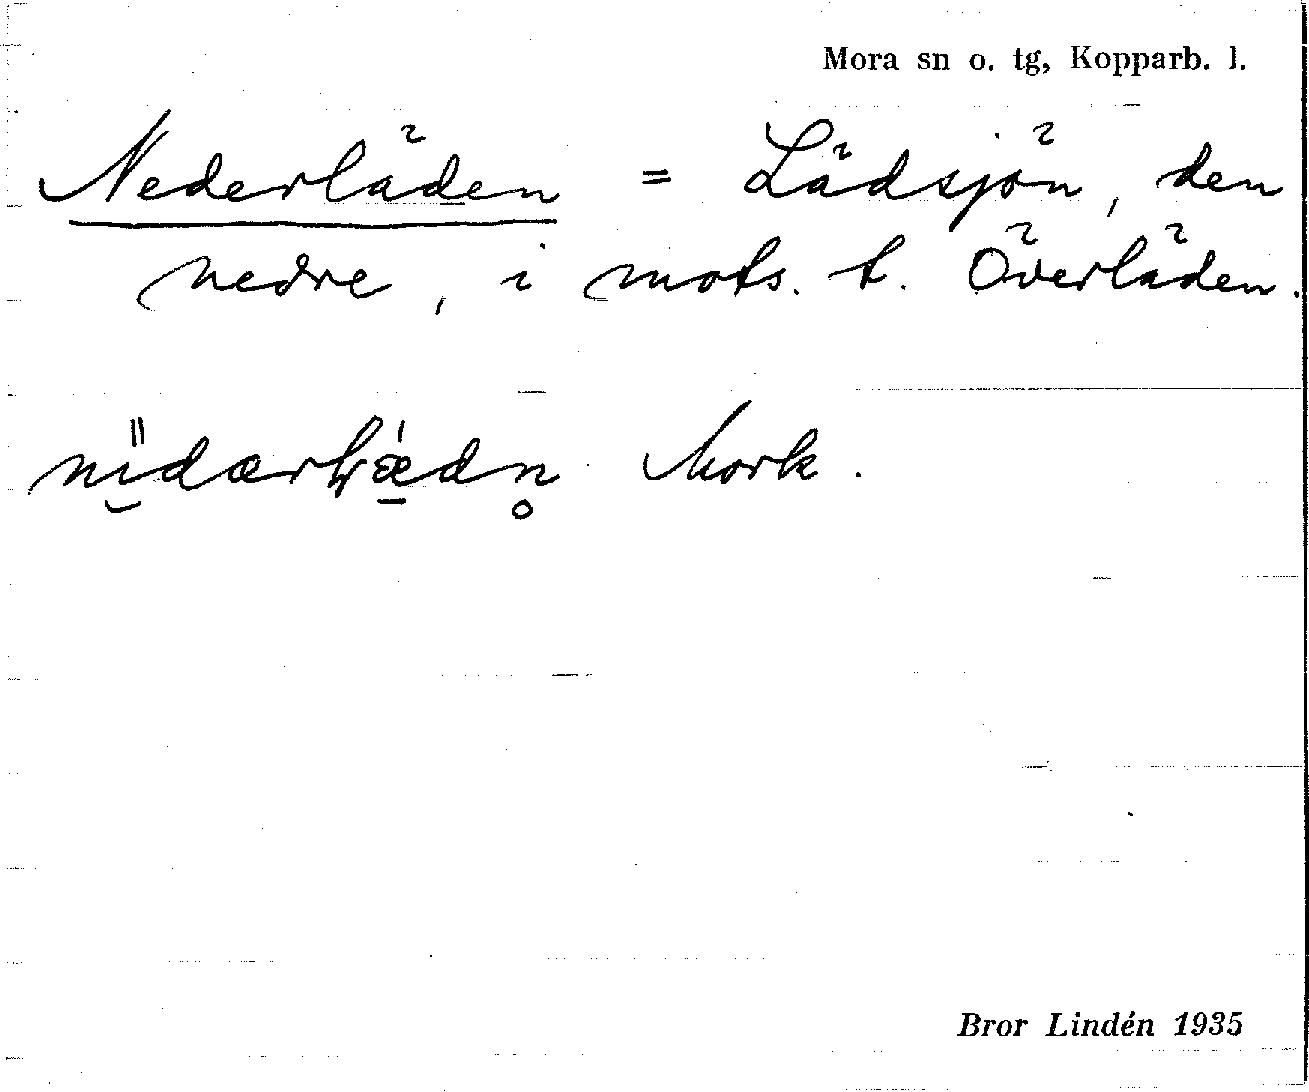 Mora sn o. tg, Kopparb. l.
Nederläden = Lädsjön, den
nedre, i mots. t. Överläden.
Mork.
Bror Lindén 1935